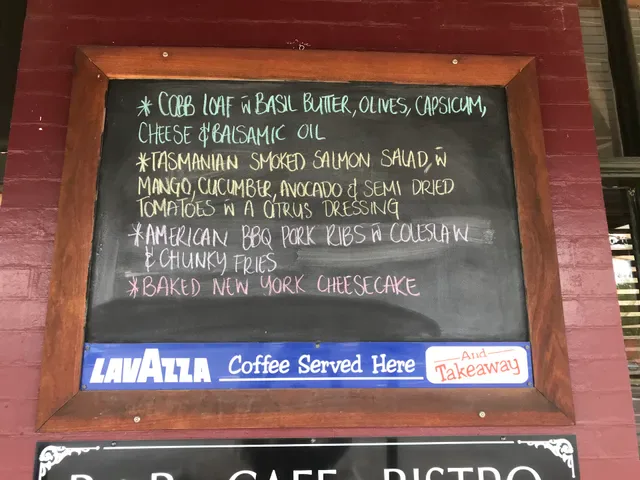 * COBB LOAF w̄ BASIL BUTTER, OLIVES, CAPSICUM,
CHEESE & BALSAMIC OIL
* TASMANIAN SMOKED SALMON SALAD, w̄
MANGO, CUCUMBER, AVOCADO & SEMI DRIED
TOMATOES w̄ A CITRUS DRESSING
* AMERICAN BBQ PORK RIBS w̄ COLESLAW
& CHUNKY FRIES
* BAKED NEW YORK CHEESECAKE
LAVAZZA Coffee Served Here And
Takeaway
CAFE BISTRO